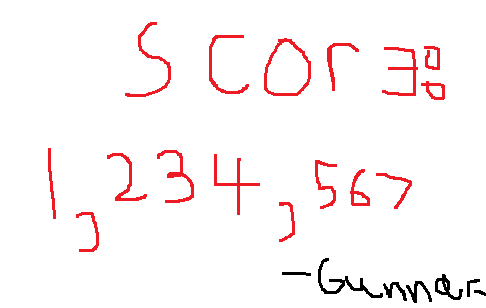 Score:
1,234,567
-Gunnar